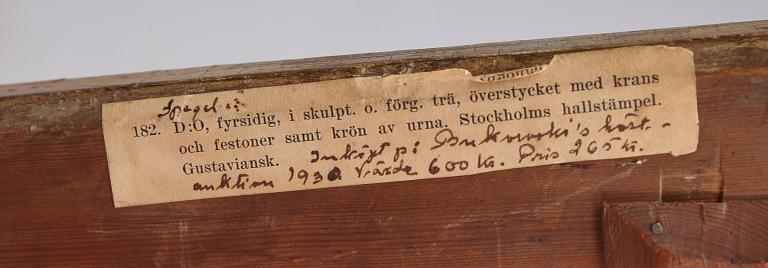 Spegel i:
182. D:O, fyrsidig, i skulpt. o. förg. trä, överstycket med krans
och festoner samt krön av urna. Stockholms hallstämpel.
Gustaviansk. Inköpt på Bukowski's höst-
auktion 1930 Värde 600 kr. Pris 265 kr.